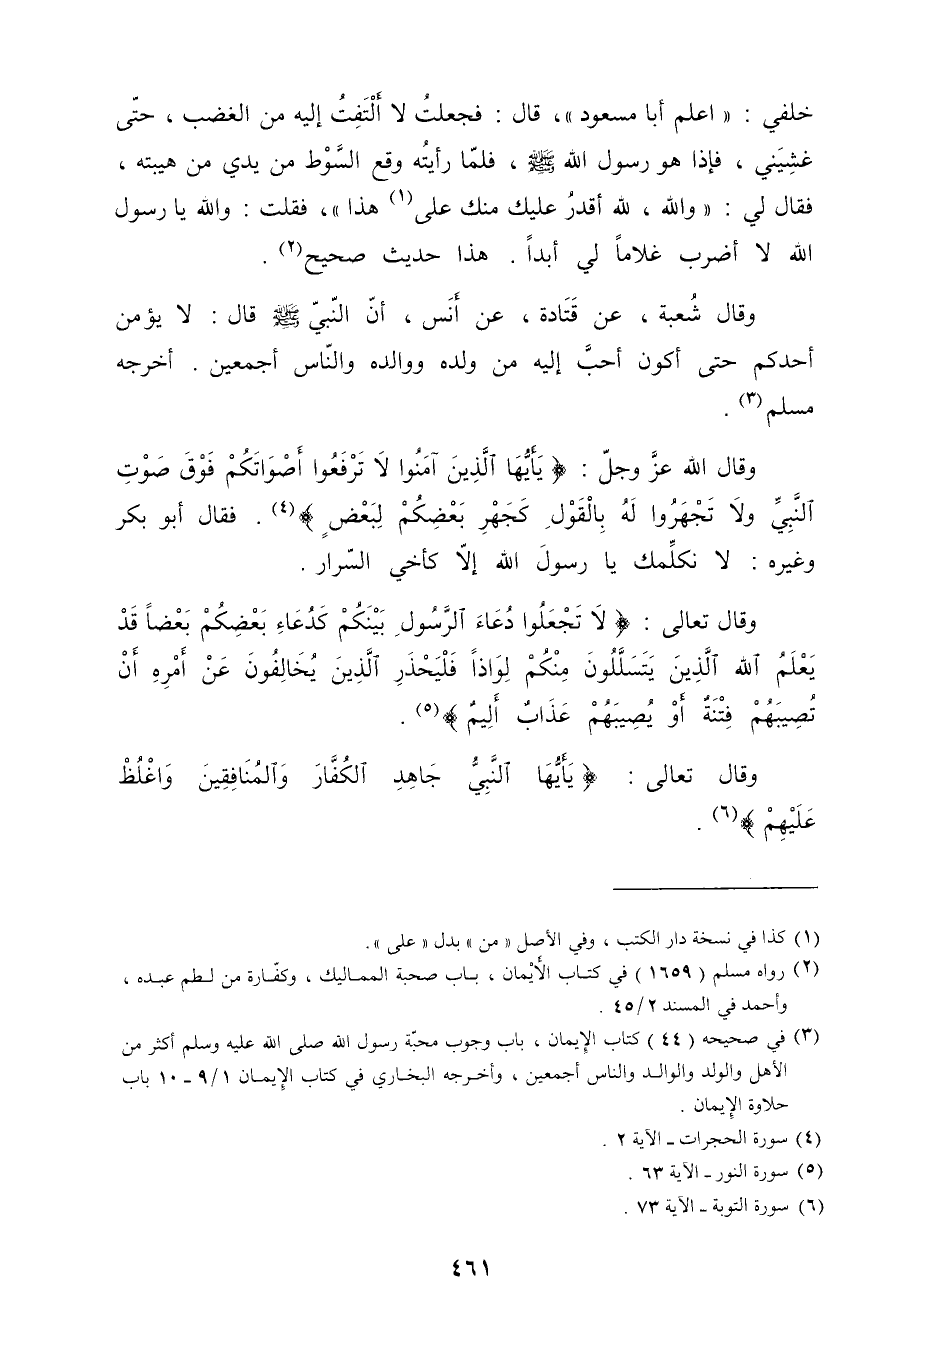 خلفي : « اعلم أبا مسعود »، قال : فجعلتُ لا أَلْتَفِتُ إليه من الغضب ، حتّى
غشِيَني ، فإذا هو رسول الله ﷺ ، فلمّا رأيتُه وقع السَّوْط من يدي من هيبته ،
فقال لي : « والله ، لله أقدرُ عليك منك على(١) هذا »، فقلت : والله يا رسول
الله لا أضرب غلاماً لي أبداً . هذا حديث صحيح(٢) .
وقال شُعبة ، عن قَتَادة ، عن أَنَس ، أنّ النّبيّ ﷺ قال : لا يؤمن
أحدكم حتى أكون أحبَّ إليه من ولده ووالده والنّاس أجمعين . أخرجه
مسلم(٣) .
وقال الله عزَّ وجلّ : ﴿ يَٰأَيُّهَا ٱلَّذِينَ آمَنُوا لَا تَرْفَعُوا أَصْوَاتَكُمْ فَوْقَ صَوْتِ
ٱلنَّبِيِّ ولَا تَجْهَرُوا لَهُ بِالْقَوْلِ كَجَهْرِ بَعْضِكُمْ لِبَعْضٍ ﴾(٤) . فقال أبو بكر
وغيره : لا نكلِّمك يا رسولَ الله إلّا كأخي السّرار .
وقال تعالى : ﴿ لَا تَجْعَلُوا دُعَاءَ ٱلرَّسُولِ بَيْنَكُمْ كَدُعَاءِ بَعْضِكُمْ بَعْضاً قَدْ
يَعْلَمُ ٱلله ٱلَّذِينَ يَتَسَلَّلُونَ مِنْكُمْ لِوَاذاً فَلْيَحْذَرِ ٱلَّذِينَ يُخَالِفُونَ عَنْ أَمْرِهِ أَنْ
تُصِيبَهُمْ فِتْنَةٌ أَوْ يُصِيبَهُمْ عَذَابٌ أَلِيمٌ ﴾(٥) .
وقال تعالى : ﴿ يَٰأَيُّهَا ٱلنَّبِيُّ جَاهِدِ ٱلكُفَّارَ وَٱلمُنَافِقِينَ وَاغْلُظْ
عَلَيْهِمْ ﴾(٦) .
(١) كذا في نسخة دار الكتب ، وفي الأصل « من » بدل « على ».
(٢) رواه مسلم ( ١٦٥٩ ) في كتاب الأَيْمان ، باب صحبة المماليك ، وكفّارة من لطم عبده ،
وأحمد في المسند ٤٥/٢ .
(٣) في صحيحه ( ٤٤ ) كتاب الإيمان ، باب وجوب محبّة رسول الله صلى الله عليه وسلم أكثر من
الأهل والولد والوالد والناس أجمعين ، وأخرجه البخاري في كتاب الإيمان ٩/١ ـ ١٠ باب
حلاوة الإيمان .
(٤) سورة الحجرات ـ الآية ٢ .
(٥) سورة النور ـ الآية ٦٣ .
(٦) سورة التوبة ـ الآية ٧٣ .
٤٦١